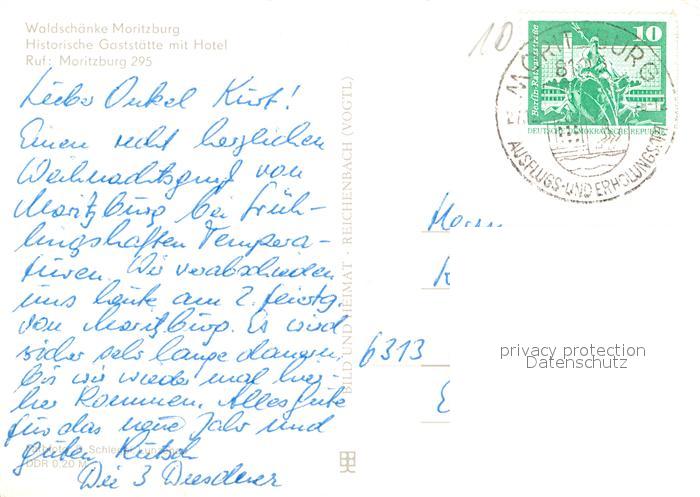 Waldschänke Moritzburg
Historische Gaststätte mit Hotel
Ruf: Moritzburg 295
Lieber Onkel Kurt!
Einen recht herzlichen
Weihnachtsgruß von
Moritzburg bei früh-
lingshaften Tempera-
turen. Wir verabschieden
uns heute am 2. Feiertg.
von Moritzburg. Es wird
sicher sehr lange dauern,
bis wir wieder mal hier-
her kommen. Alles Gute
für das neue Jahr und
guten Rutsch
Die 3 Dresdner
DDR 0,20 M
BILD UND HEIMAT · REICHENBACH (VOGTL)
10
10
Berlin-Rathausstraße
DEUTSCHE DEMOKRATISCHE REPUBLIK
MORITZBURG
AUSFLUGS- UND ERHOLUNGS
6313
privacy protection
Datenschutz